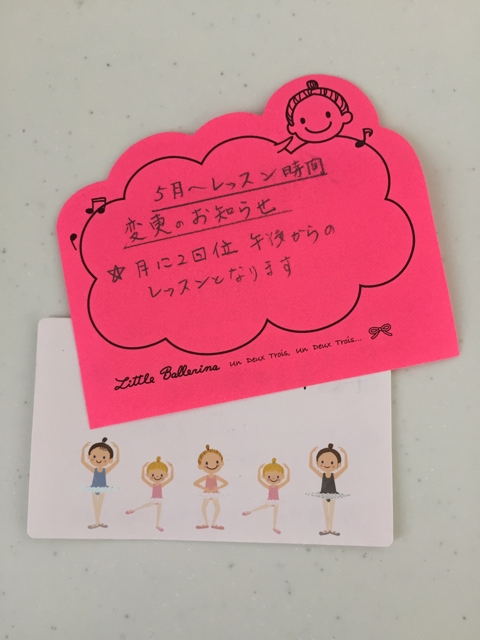 5月〜レッスン時間
変更のお知らせ
☆月に2回位 午後からの
レッスンとなります
Little Ballerina Un Deux Trois, Un Deux Trois...